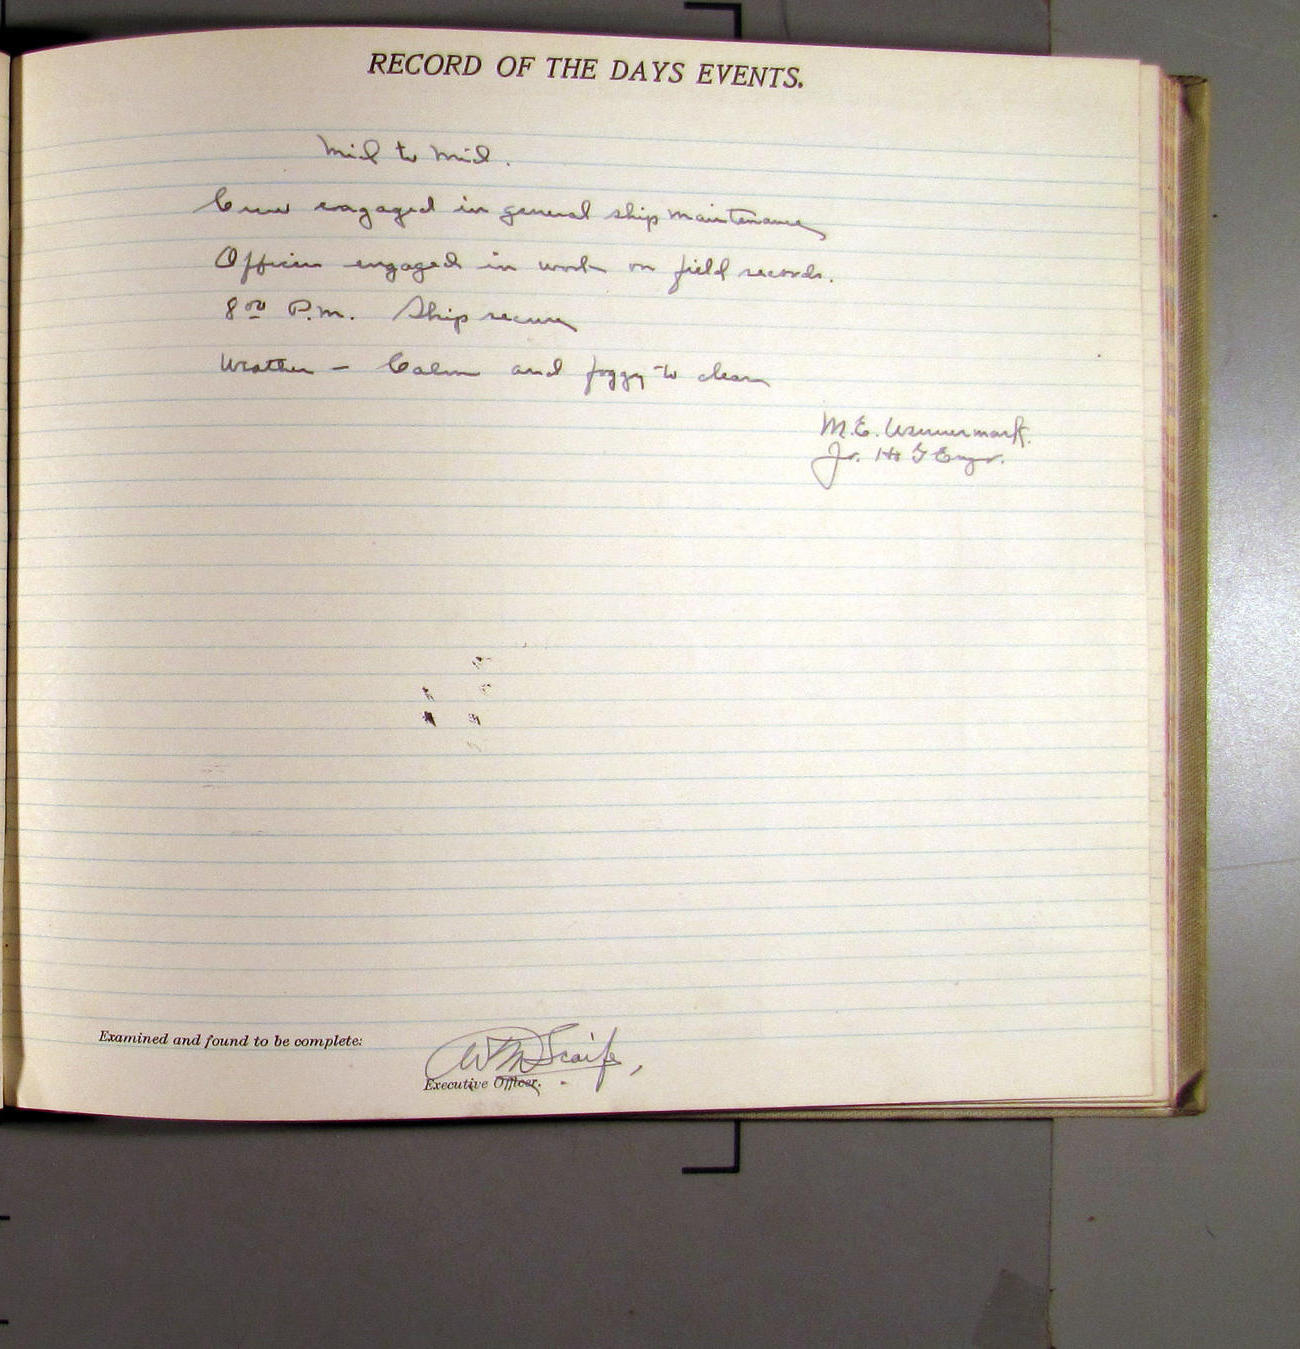 RECORD OF THE DAYS EVENTS.
Mid to Mid.
Crew engaged in general ship maintenance
Officers engaged in work on field records.
8 00 P.M. Ship secure
Weather – Calm and foggy to clear
M.E. Wennermark.
Jr. H & G Engr.
Examined and found to be complete:
W M Scaife,
Executive Officer.